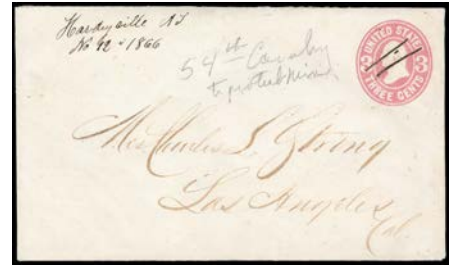 Hardyville AT
No 42 - 1866
54th Cavalry
to protect
UNITED STATES
3 3
THREE CENTS
Mr Charles L Strong
Los Angeles
Cal